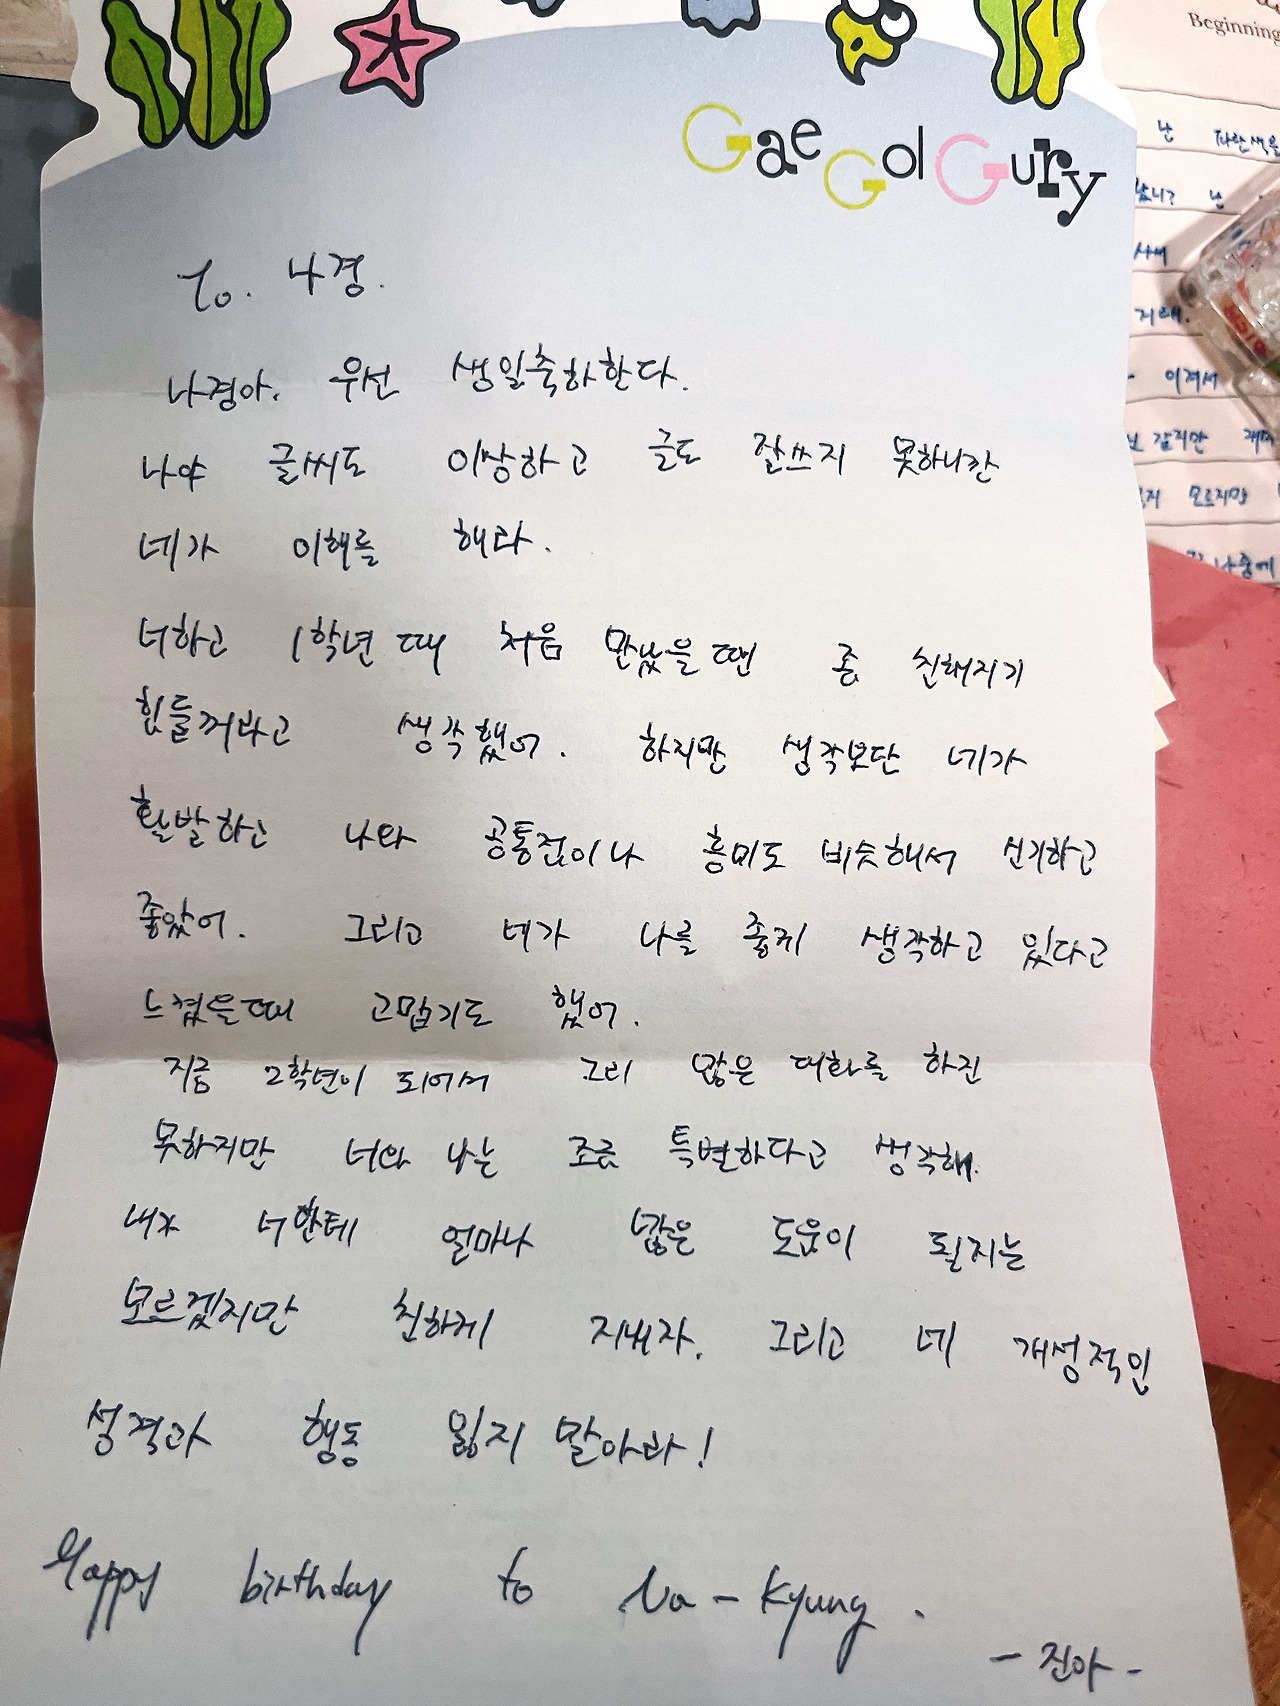 Beginning
Gae Gol Gury
To. 나경.
나경아. 우선 생일축하한다.
나야 글씨도 이상하고 글도 잘쓰지 못하니깐
네가 이해를 해라.
너하고 1학년 때 처음 만났을 땐 좀 친해지기
힘들꺼라고 생각했어. 하지만 생각보단 네가
활발하고 나와 공통점이나 흥미도 비슷해서 신기하고
좋았어. 그리고 네가 나를 좋게 생각하고 있다고
느꼈을때 고맙기도 했어.
지금 2학년이 되어서 그리 많은 대화를 하진
못하지만 너와 나는 조금 특별하다고 생각해.
내가 너한테 얼마나 많은 도움이 될지는
모르겠지만 친하게 지내자. 그리고 네 개성적인
성격과 행동 잃지 말아라!
Happy birthday to Na-Kyung.
- 진아 -
난 파란색을
난
지해.
이겨서
같지만
모르지만
나중에